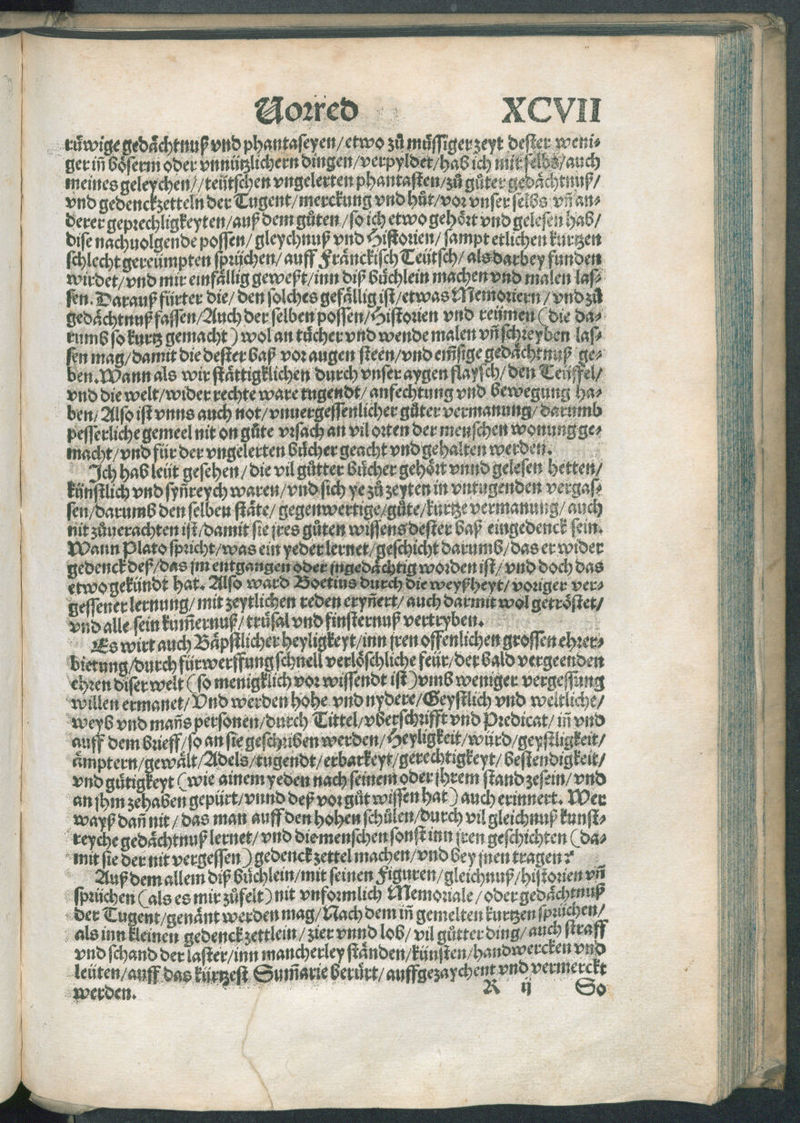 Vorred XCVII
rüwige gedächtnuß vnd phantaseyen/etwo zů müssiger zeyt dester weni-
ger iñ bösern oder vnnützlichern dingen/verpyldet/hab ich mir selbs/auch
meines geleychen//teütschen vngelerten phantasten/zů gůter gedächtnuß/
vnd gedenckzetteln der Tugent/merckung vnd hůt/vor vnser selbs vñ an-
derer geprechligkeyten/auß dem gůten/so ich etwo gehört vnd gelesen hab/
dise nachuolgende possen/gleychnuß vnd Historien/sampt etlichen kurtzen
schlecht gereümpten sprüchen/auff Fränckisch Teütsch/als darbey funden
wirdet/vnd mir einfällig geweßt/inn diß büchlein machen vnd malen las-
sen. Darauß fürter die/den solches gefällig ist/etwas Memoriern/vnd zů
gedächtnuß fassen/Auch der selben possen/Historien vnd reümen (die da-
rumb so kurtz gemacht) wol an tücher vnd wende malen vñ schreyben las-
sen mag/damit die dester baß vor augen steen/vnd emßige gedächtnuß ge-
ben. Wann als wir stättigklichen durch vnser aygen flaysch/den Teüffel/
vnd die welt/wider rechte ware tugendt/anfechtung vnd bewegung ha-
ben/Also ist vnns auch not/vnuergessenlicher gůter vermanung/darumb
pesserliche gemeel nit on gůte vrsach an vil orten der menschen wonung ge-
macht/vnd für der vngelerten bücher geacht vnd gehalten werden.
Ich hab leüt gesehen/die vil gůtter bücher gehört vnnd gelesen hetten/
künstlich vnd syñreych waren/vnd sich ye zů zeyten in vntugenden vergas-
sen/darumb den selben stäte/gegenwertige/gůte/kurtze vermanung/auch
nit zůuerachten ist/damit sie jres gůten wissens dester baß eingedenck sein.
Wann Plato spricht/was ein yeder lernet/geschicht darumb/das er wider
gedenck deß/das jm entgangen oder ingedächtig worden ist/vnd doch das
etwo gekündt hat. Also ward Boetius durch die weyßheyt/voriger ver-
gessener lernung/mit zeytlichen reden eryñert/auch darmit wol getröstet/
vnd alle sein kum̃ernuß/trüsal vnd finsternuß vertryben.
Es wirt auch Bäpstlicher heyligkeyt/inn jren offenlichen grossen ehrer-
bietung/durch fürwerffung schnell verlöschliche feür/der bald vergeenden
ehren diser welt (so menigklich vor wissendt ist) vmb weniger vergessung
willen ermanet/Vnd werden hohe vnd nydere/Geystlich vnd weltliche/
weyb vnd mañs personen/durch Tittel/vberschrifft vnd Predicat/iñ vnd
auff dem brieff/so an sie geschriben werden/Heyligkeit/würd/geystligkeit/
ämptern/gewält/Adels/tugendt/erbarkeyt/gerechtigkeyt/bestendigkeit/
vnd gütigkeyt (wie ainem yeden nach seinem oder jhrem stand zesein/vnd
an jhm zehaben gepürt/vnnd deß vor gůt wissen hat) auch erinnert. Wer
wayß dañ nit/das man auff den hohen schůlen/durch vil gleichnuß kunst-
reyche gedächtnuß lernet/vnd die menschen sonst inn jren geschichten (da-
mit sie der nit vergessen) gedenck zettel machen/vnd bey jnen tragen?
Auß dem allem diß büchlein/mit seinen Figuren/gleichnuß/historien vñ
sprüchen (als es mir zůfelt) nit vnformlich Memoriale/oder gedächtnuß
der Tugent/genãnt werden mag/Nach dem iñ gemelten kurtzen sprüchen/
als inn kleinen gedenck zettlein/zier vnnd lob/vil gůtter ding/auch straff
vnd schand der laster/inn mancherley ständen/künsten/handwercken vnd
leüten/auff das kürtzest Sum̃arie berürt/auffgezaychent vnd vermerckt
werden. R ij So